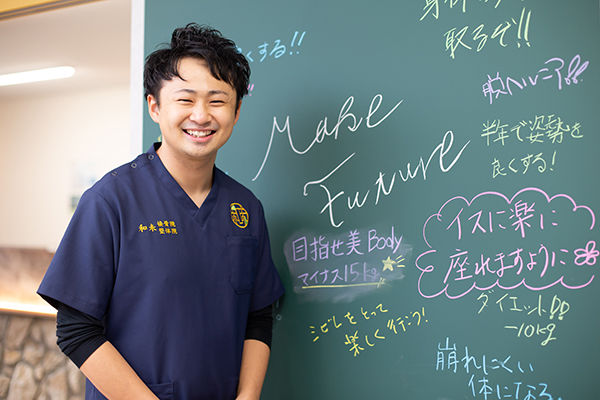 くする!!
取るぞ!!
脱ヘルニア!!
半年で姿勢を
良くする!
Make
Future
イスに楽に
座れますように
目指せ美Body
マイナス15kg
シビレをとって
楽しく行こう!
ダイエット!!
-10kg
崩れにくい
体になる。
和木 接骨院
整体院